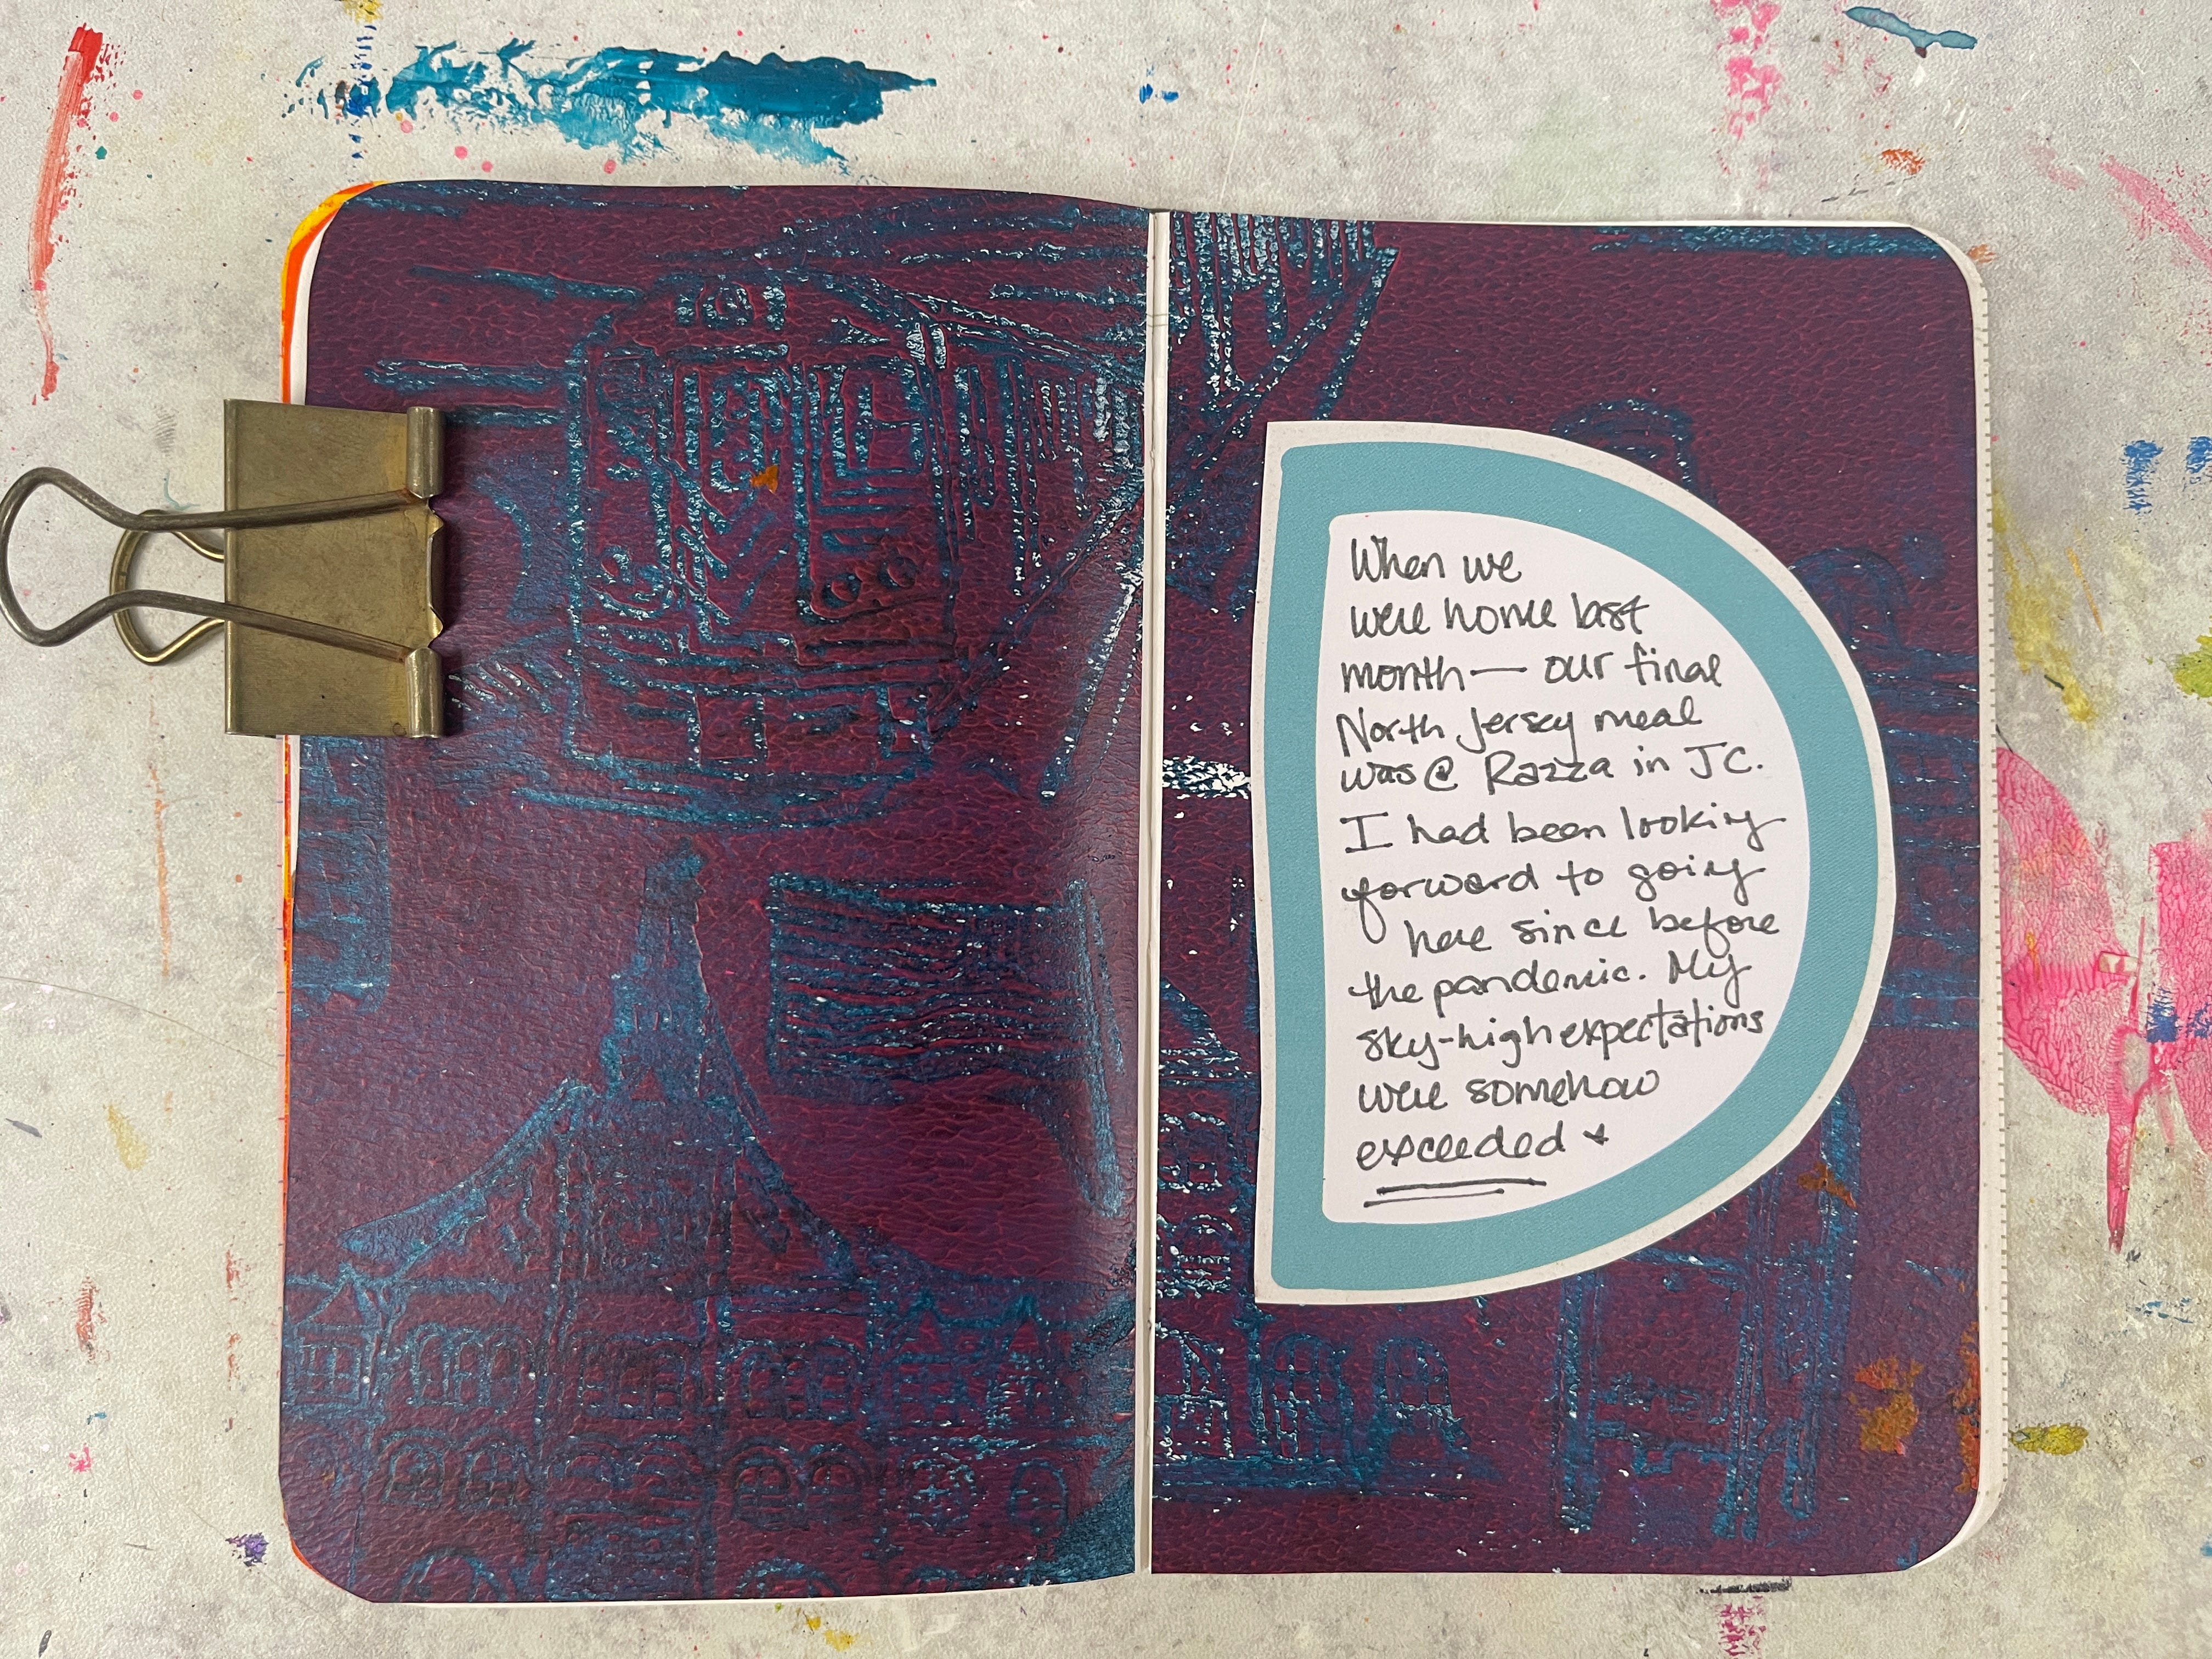 When we
were home last
month — our final
North Jersey meal
was @ Razza in JC.
I had been looking
forward to going
here since before
the pandemic. My
sky-high expectations
were somehow
exceeded